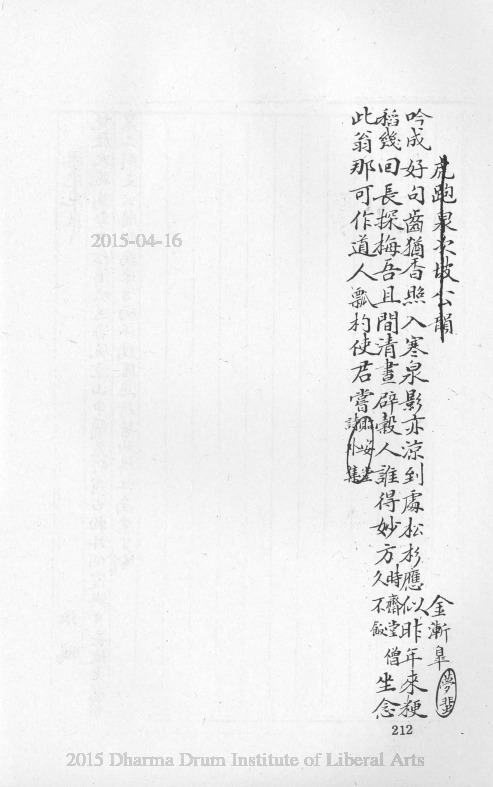 虎跑泉次坡公韻
金漸皐 夢蜚
吟成好句齒猶香照入寒泉影亦涼到處松杉應似昨年來粳
稻幾回長探梅吾且間清晝辟穀人誰得妙方時齋堂僧久不飯坐念
此翁那可作道人瓢杓使君嘗 詩外集
212
2015-04-16
2015 Dharma Drum Institute of Liberal Arts